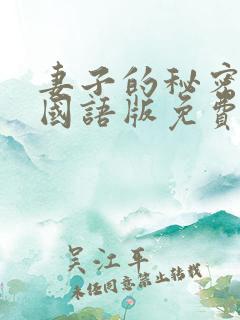 妻子的秘密
國語版免費
吴江平
未经同意禁止转载